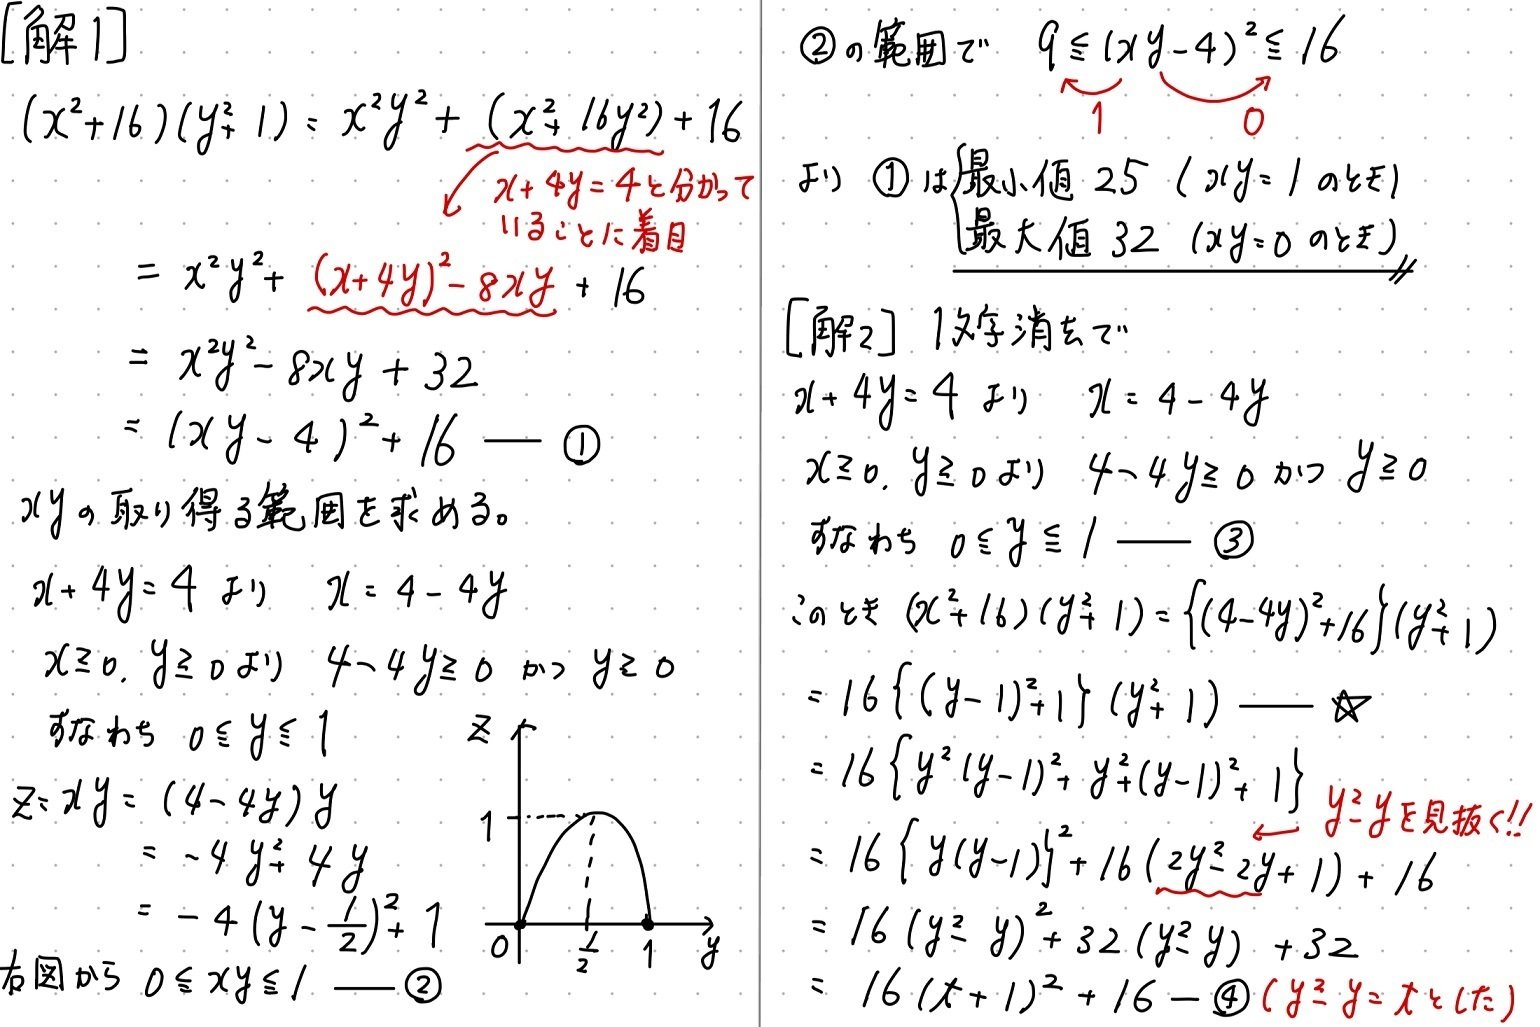 [解1]
(x²+16)(y²+1) = x²y² + (x²+16y²) + 16
x+4y=4と分かって
いることに着目
= x²y² + (x+4y)² - 8xy + 16
= x²y² - 8xy + 32
= (xy - 4)² + 16 —— ①
xyの取り得る範囲を求める。
x+4y=4 より x = 4 - 4y
x≧0, y≧0より 4-4y≧0 かつ y≧0
すなわち 0≦y≦1
z = xy = (4-4y)y
= -4y²+4y
= -4(y - 1/2)² + 1
右図から 0≦xy≦1 —— ②
z
1
0
1/2
1
y
②の範囲で 9≦(xy-4)²≦16
1
0
より ①は{最小値 25 (xy=1 のとき)
最大値 32 (xy=0 のとき)
[解2] 1文字消去で
x+4y=4 より x = 4 - 4y
x≧0, y≧0より 4-4y≧0 かつ y≧0
すなわち 0≦y≦1 —— ③
このとき (x²+16)(y²+1) = {(4-4y)²+16}(y²+1)
= 16{(y-1)²+1}(y²+1) —— ☆
= 16{y²(y-1)²+y²+(y-1)²+1}
y²-yを見抜く!!
= 16{y(y-1)}²+16(2y²-2y+1)+16
= 16(y²-y)²+32(y²-y)+32
= 16(t+1)²+16 — ④(y²-y=tとした)